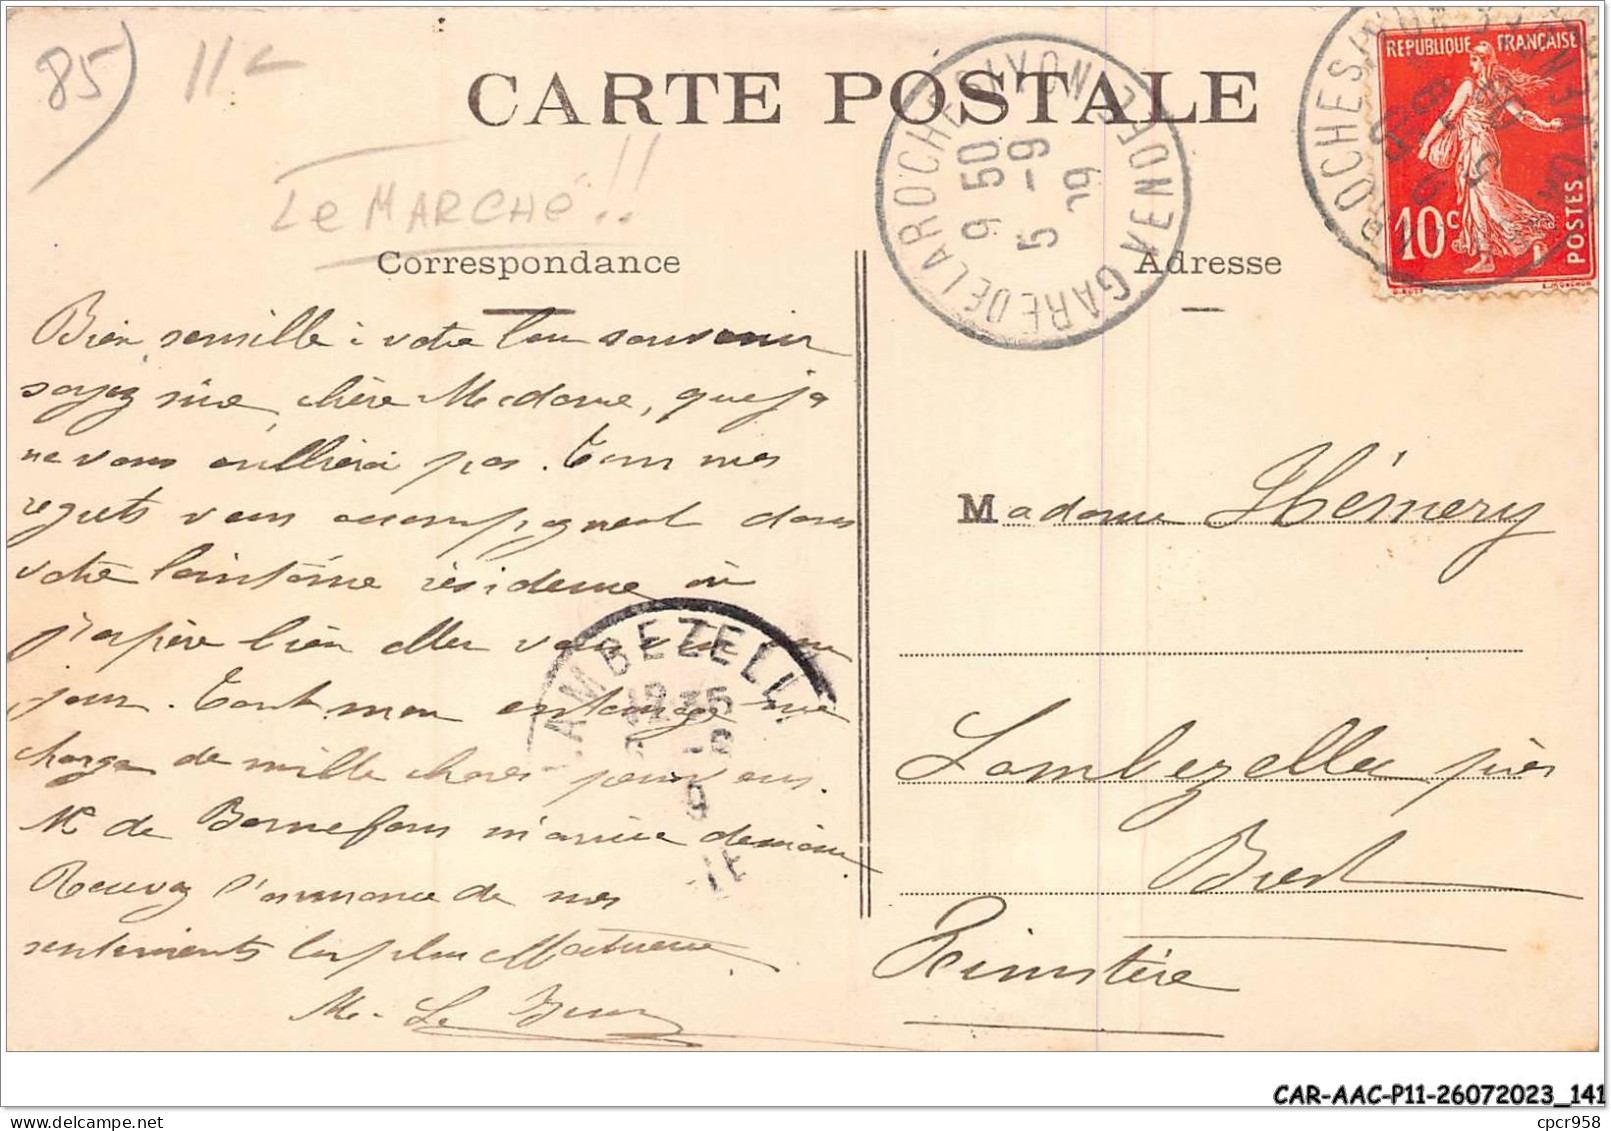 85) 11-
CARTE POSTALE
Le MARCHÉ!!
Correspondance
Adresse
REPUBLIQUE FRANÇAISE
10c
POSTES
GARE DE LA ROCHE-S-YON VENDEE
9 50
5 -9
19
Bien sensible à votre bon souvenir
soyez sûre, chère Madame, que je
ne vous oublierai pas. Tous mes
regrets vous accompagnent dans
votre lointaine résidence où
j'espère bien aller vous voir un
jour. Tout mon entourage me
charge de mille choses pour vous.
Mr de Bonnefous m'arrive demain
Recevez l'assurance de mes
sentiments les plus affectueux
M. Le
LAMBEZELLEC
12 35
Madame Hémery
Lambezellec près
Brest
Finistère
CAR-AAC-P11-26072023_141
cpcr958